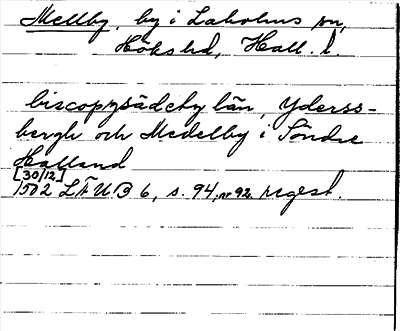 Mellby, by i Laholms sn,
Höks hd, Hall. l.
biscopzsädehy län, Yderss-
bergh och Medelby i Söndre
Halland
[30/12]
1502 LFUB 6, s. 94, nr 92, regest.